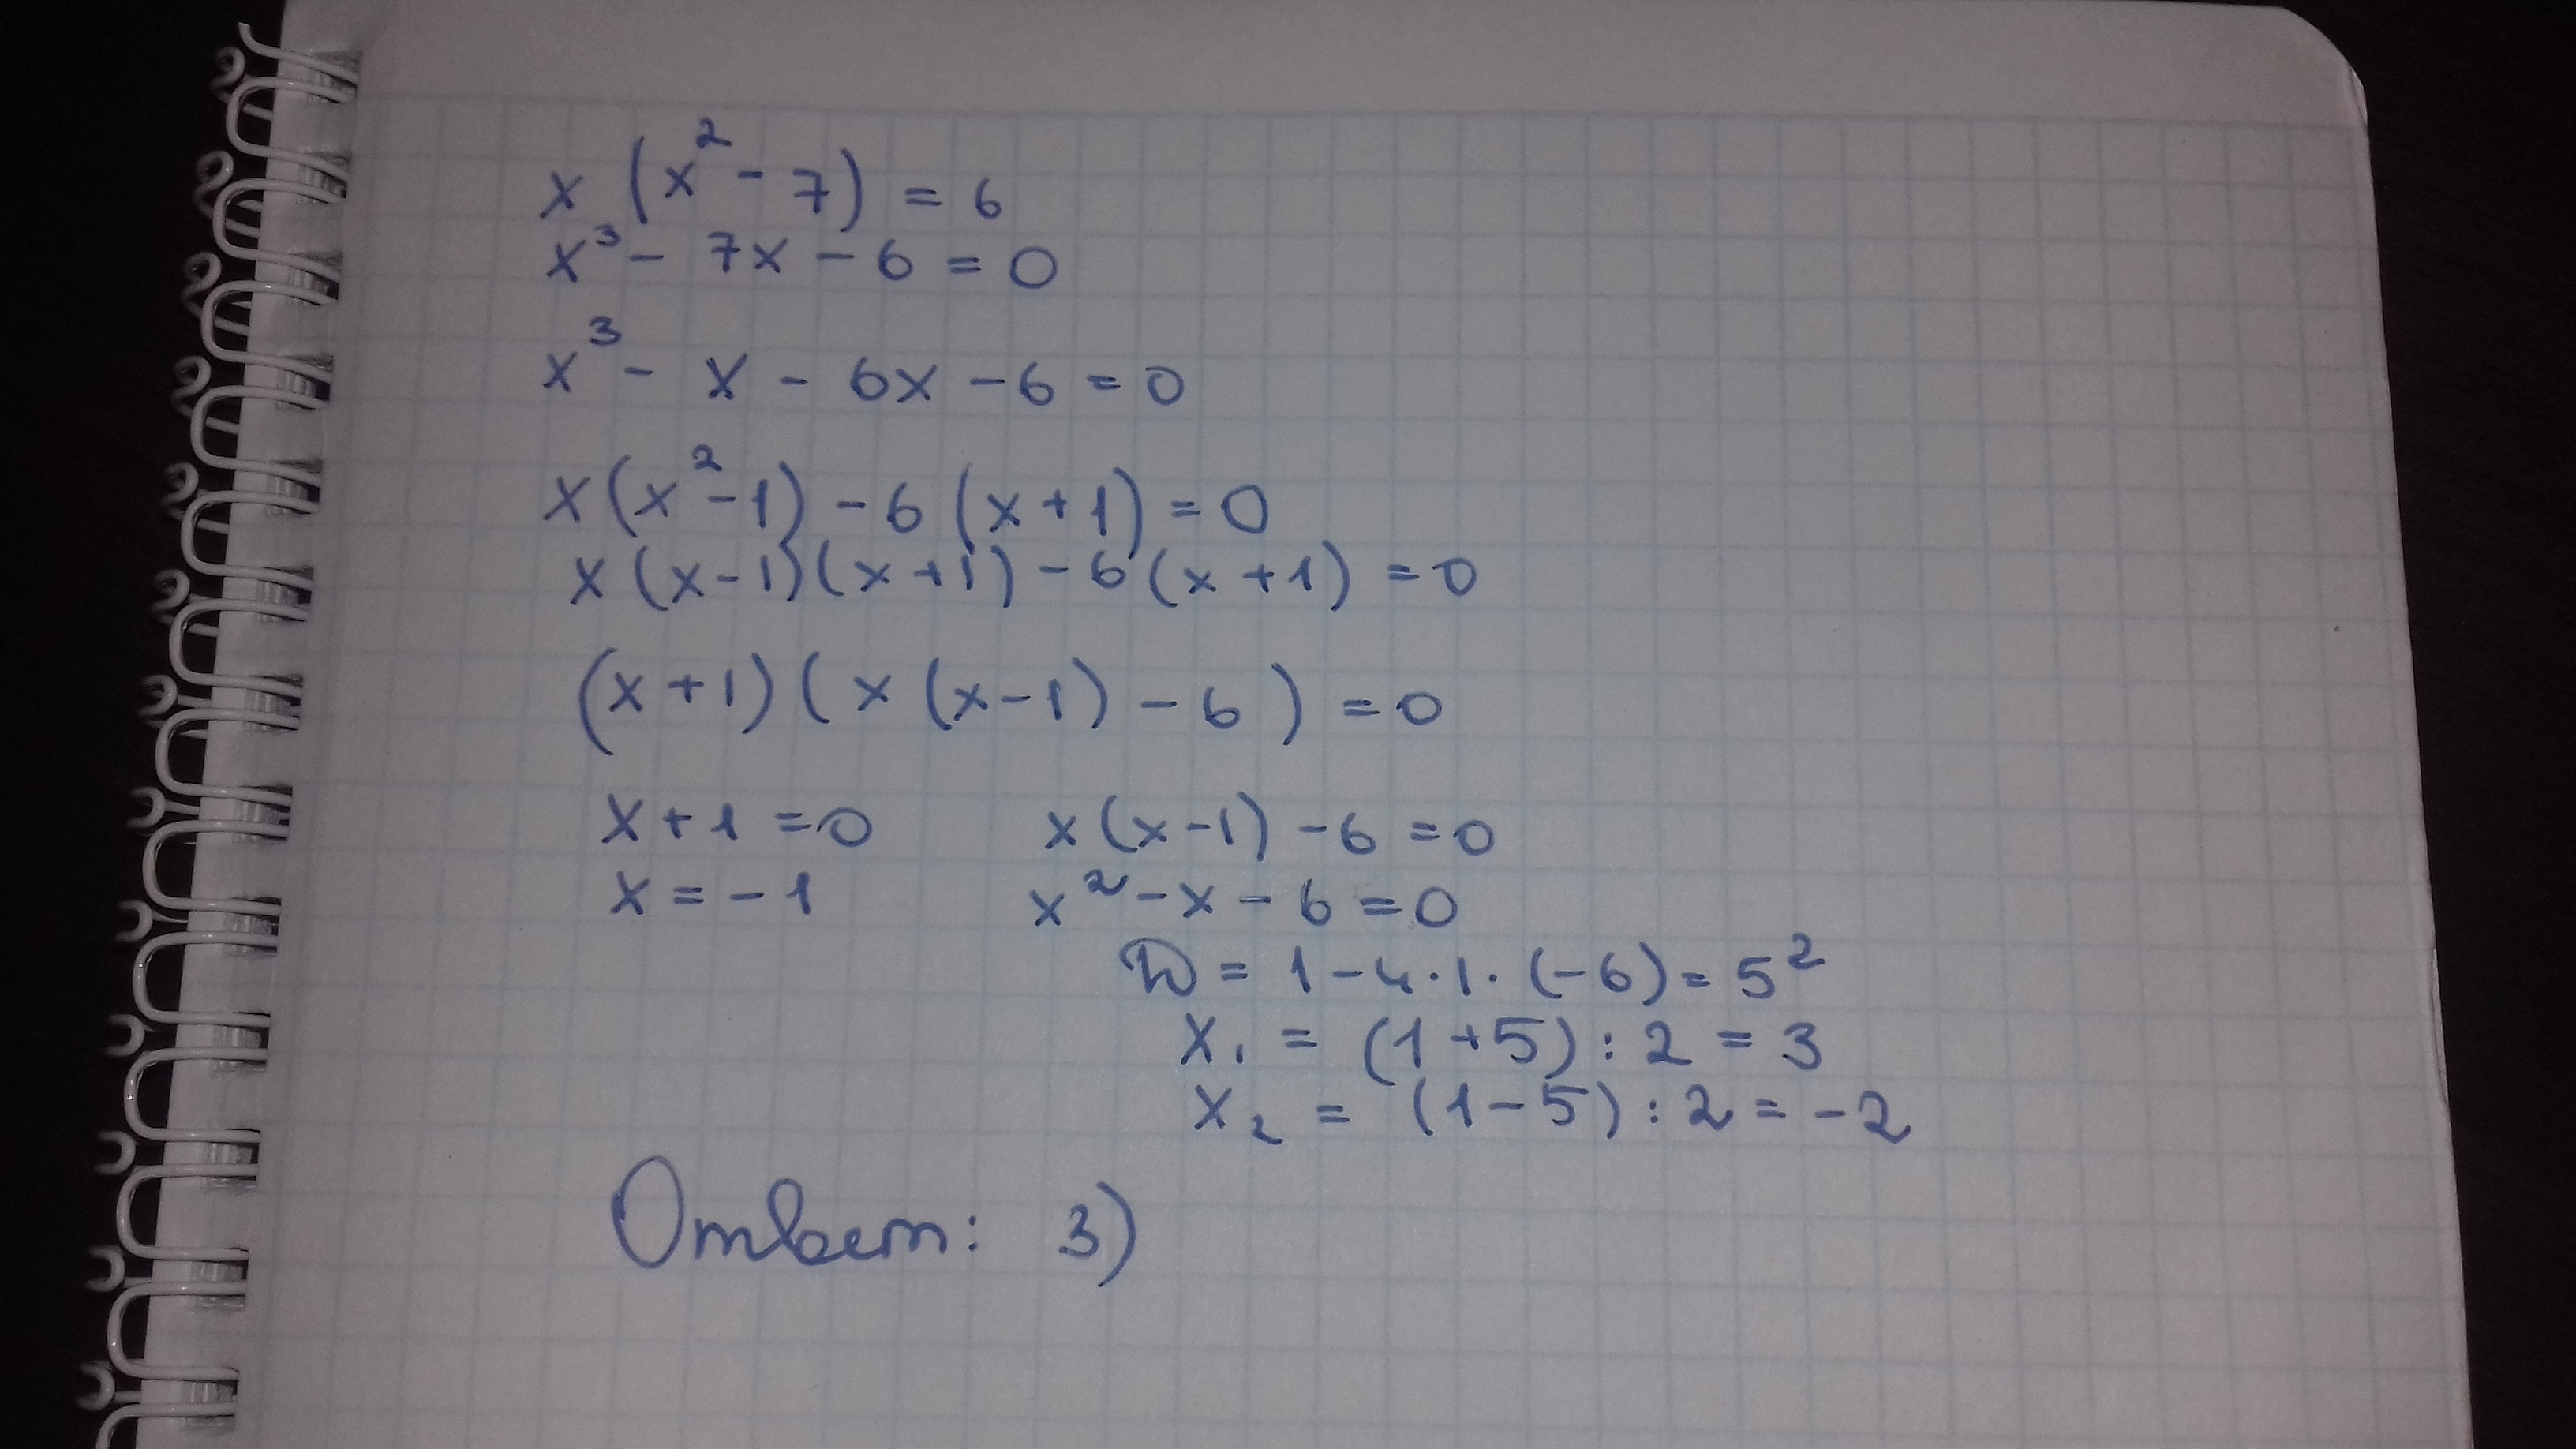 x (x² - 7) = 6
x³ - 7x - 6 = 0
x³ - x - 6x - 6 = 0
x(x² - 1) - 6 (x + 1) = 0
x (x - 1)(x + 1) - 6 (x + 1) = 0
(x + 1) ( x (x - 1) - 6 ) = 0
x + 1 = 0 x (x - 1) - 6 = 0
x = - 1 x² - x - 6 = 0
D = 1 - 4 · 1 · (-6) = 5²
x₁ = (1 + 5) : 2 = 3
x₂ = (1 - 5) : 2 = -2
Ответ: 3)